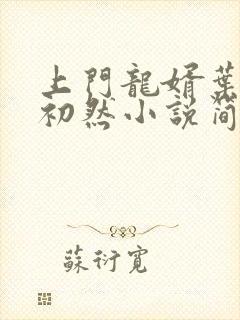 上門龍婿葉
初然小說簡
蘇衍寬